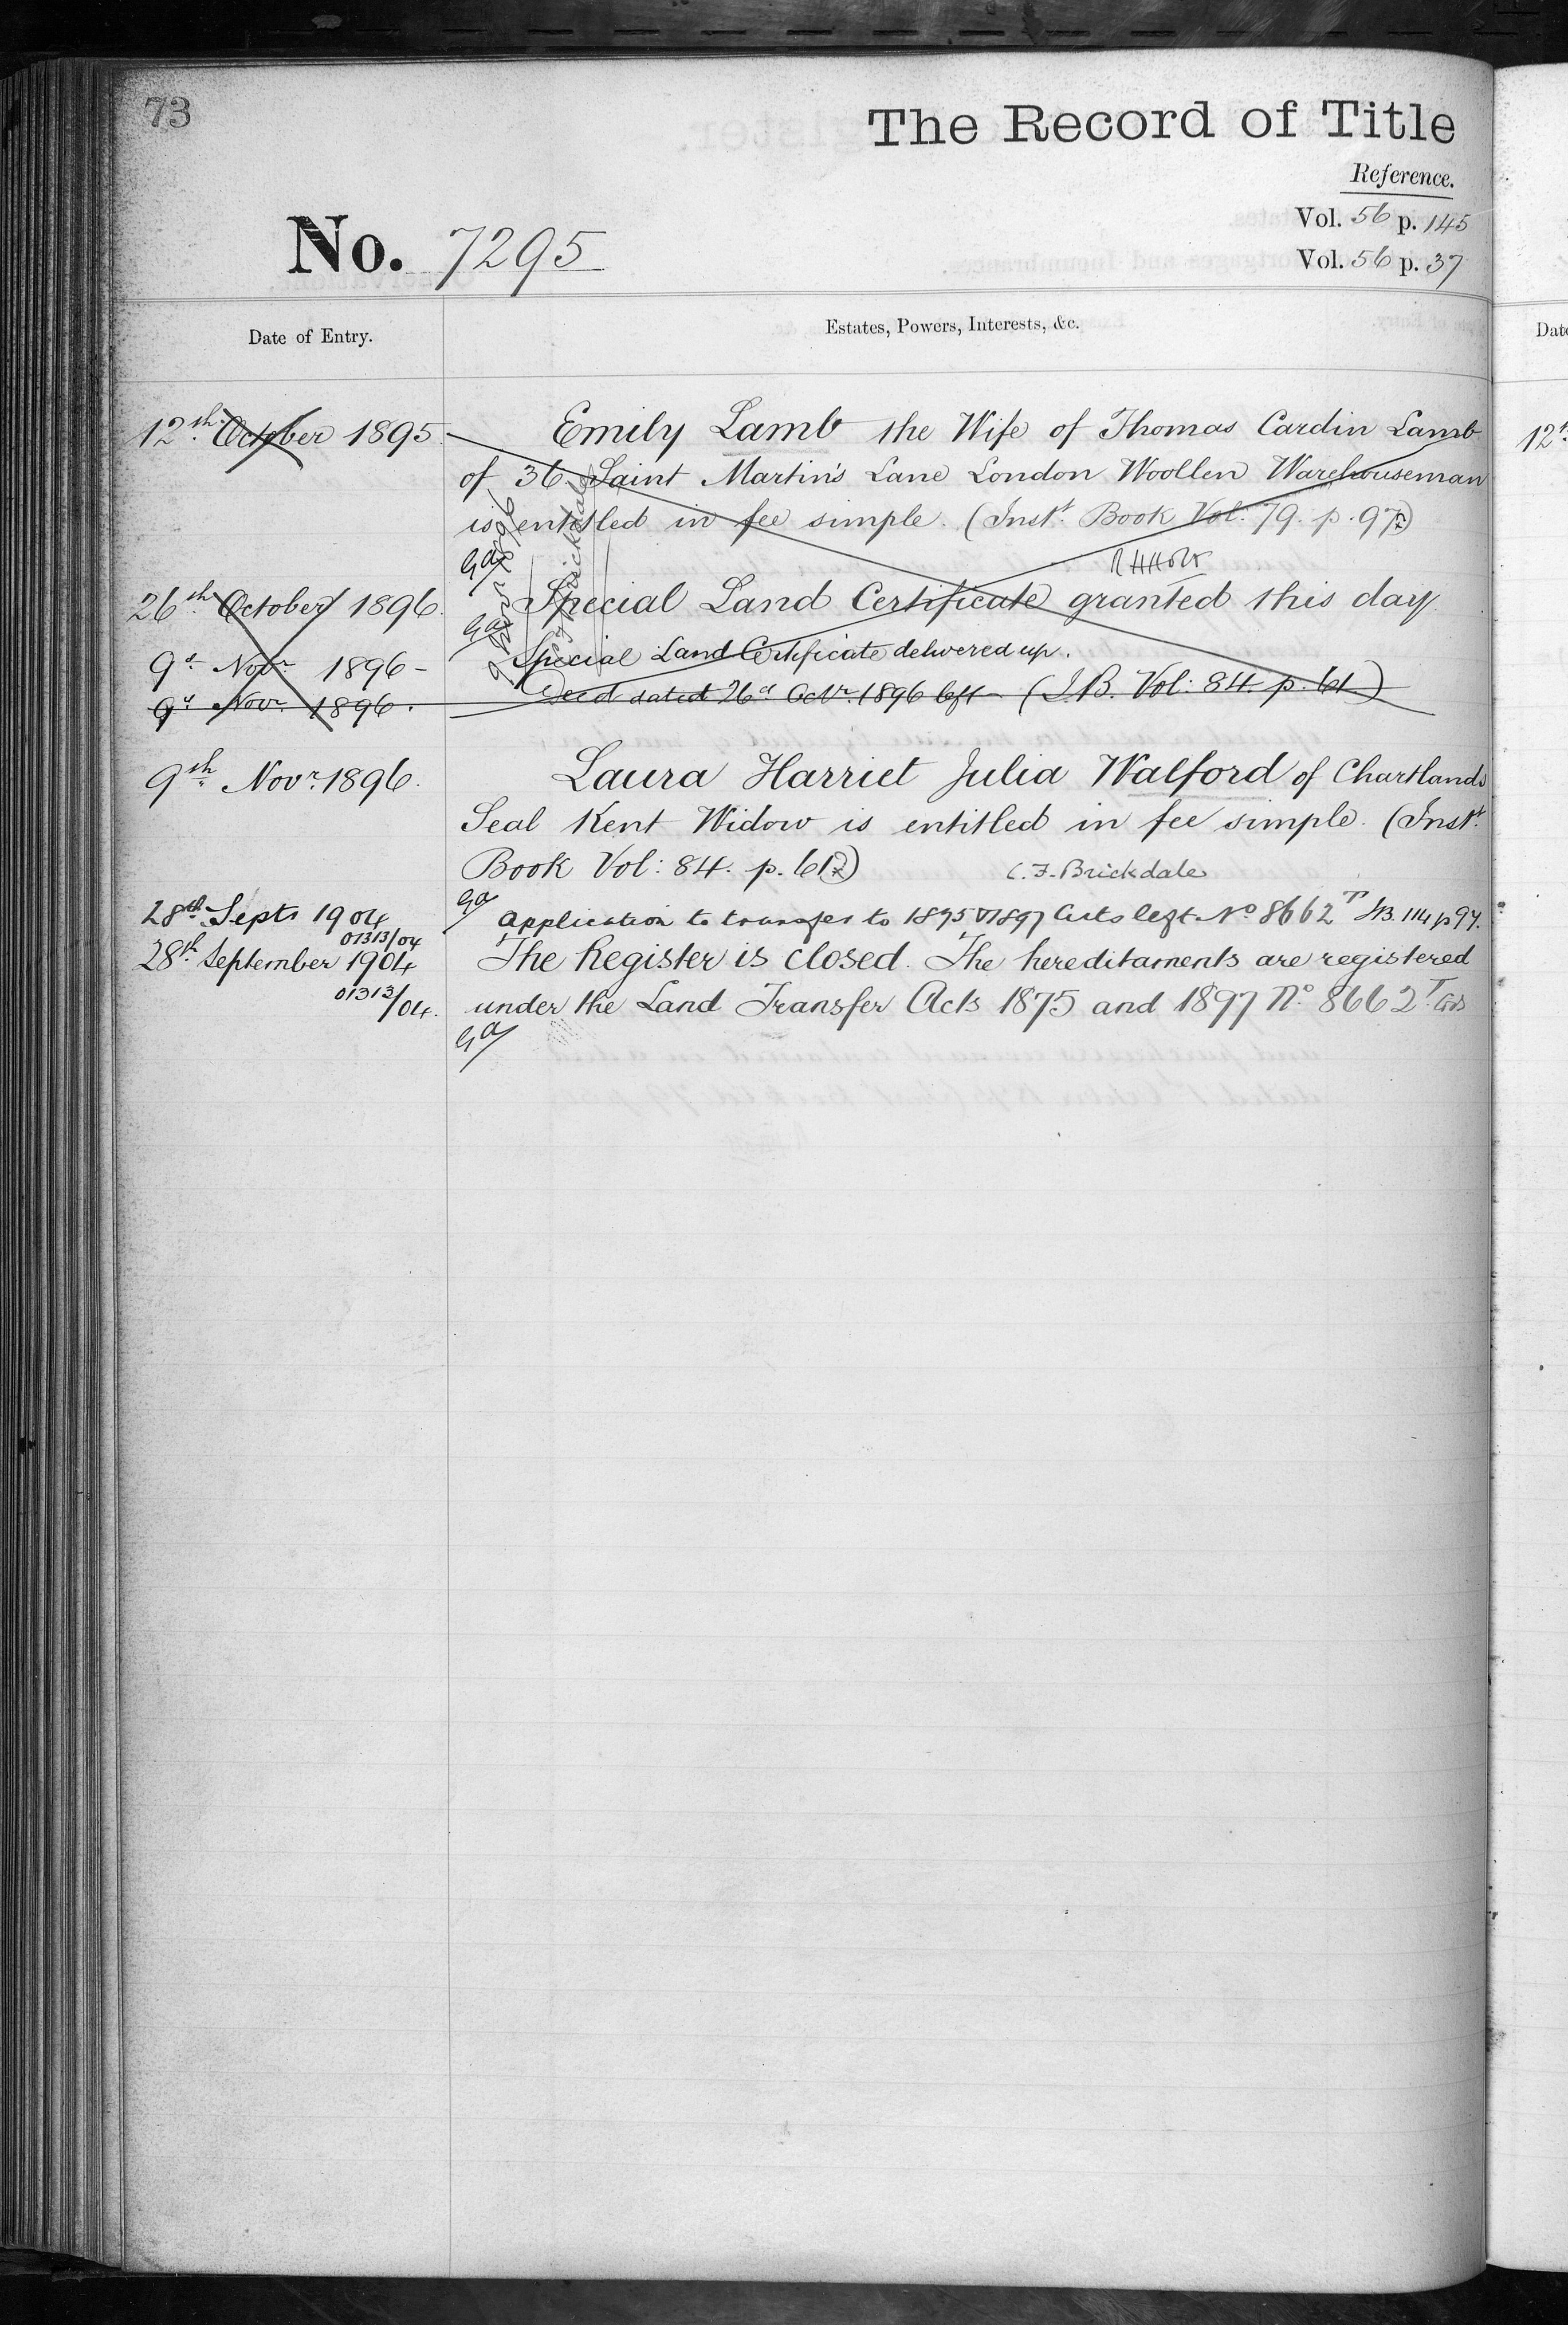 73
The Record of Title
Reference.
Vol. 56 p. 145
No. 7295
Vol. 56 p. 37
Date of Entry.
Estates, Powers, Interests, &c.
12th October 1895. Emily Lamb the Wife of Thomas Cardin Lamb
of 36 Saint Martin's Lane London Woollen Warehouseman
is entitled in fee simple. (Inst. Book Vol: 79. p. 97)
26th October 1896. Special Land Certificate granted this day
9th Novr 1896 - Special Land Certificate delivered up.
9th Novr 1896. Deed dated 26th Octr. 1896 left - (I.B. Vol: 84. p. 61)
9th Novr. 1896. Laura Harriet Julia Walford of Chartlands
Seal Kent Widow is entitled in fee simple. (Inst.
Book Vol: 84. p. 61)
C. F. Brickdale
28th Septr 1904 Application to transfer to 1875 & 1897 Acts left No 8662 T I.B. 114 p 97.
01313/04
28th September 1904 The Register is closed. The hereditaments are registered
01313/04. under the Land Transfer Acts 1875 and 1897 No. 8662 T.
Date
12th